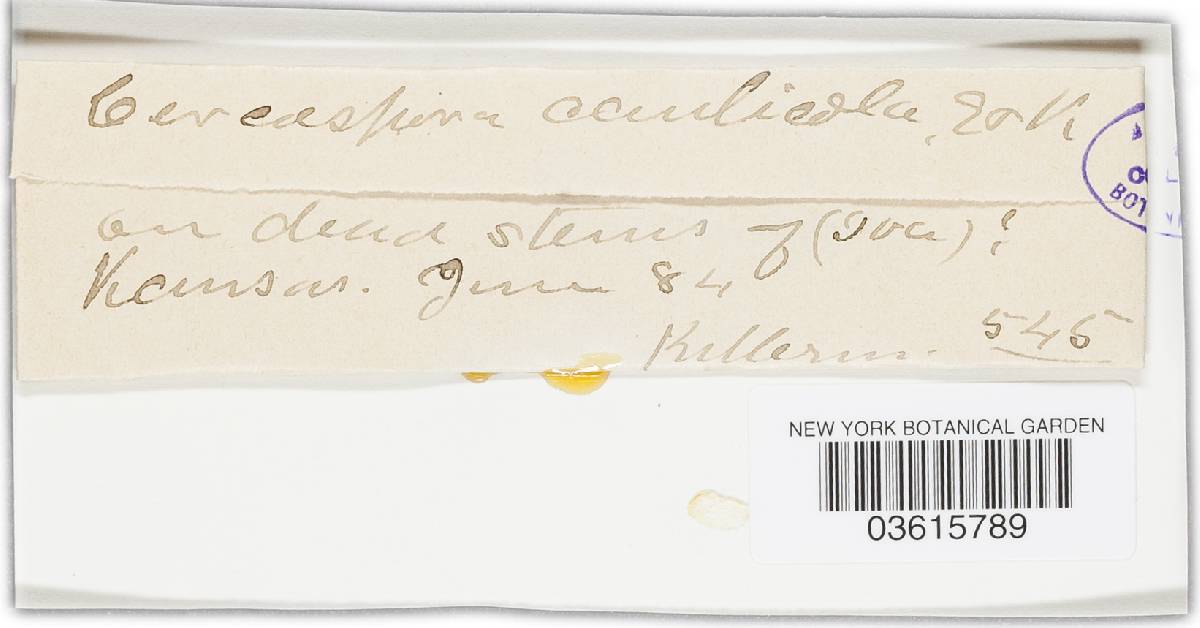 Cercospora caulicola, E & K
on dead stems of (Iva)?
Kansas. June 84
Kellerm. 545
BOT
NEW YORK BOTANICAL GARDEN
03615789